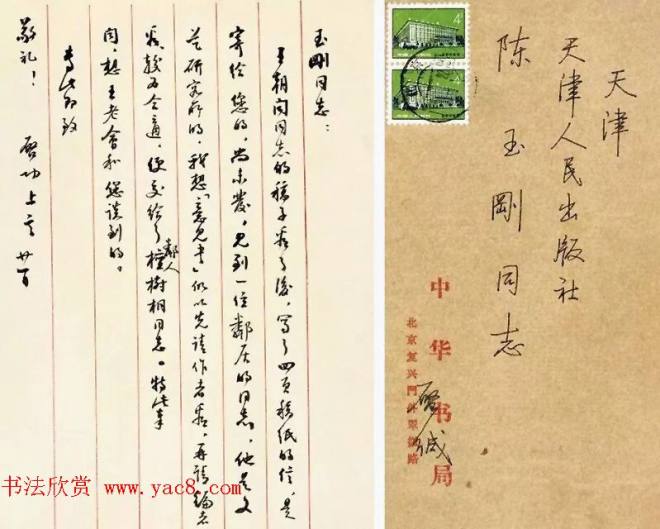 玉剛同志：
王朝闻同志的稿子看了后，写了四页稿纸的信，是
寄给您的，尚未发，见到一位鄰居的同志，他是文
艺研究所的，我想「意見书」似以先请作者看，再请編者
看，較为合適，便交给了
鄰人
樹相同志。特此奉
闻，想王老会和您谈到的。
专此即致
敬礼！
启功上言 廿日
天津
天津人民出版社
陈玉剛同志
中华书局
北京复兴门外翠微路
启缄
书法欣赏 www.yac8.com